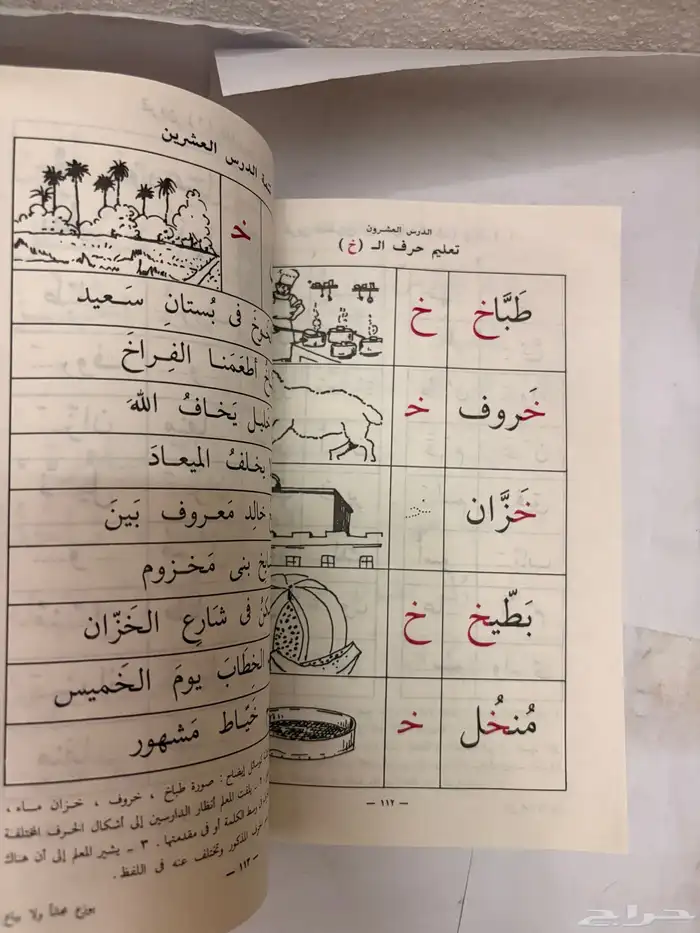 الدرس العشرون
تعليم حرف الـ (خ)
طَبَّاخ خ
خَروف خـ
خَزَّان خـ
بَطّيخ خ
مُنخُل خـ
— ١١٢ —
الدرس العشرين
خـ
فى بُستانِ سَـعيد
أطعَمَنـا الفِـراخَ
يَخـافُ اللهَ
يخـلفُ الميعـادَ
خالِد مَعـروف بَينَ
بنى مَخـزوم
فى شارِعِ الخَزّان
الخطابَ يومَ الخَميس
خَيّاط مَشهور
إيضاح : صورة طباخ ، خروف ، خـزان مـاء ،
يلفت المعلم أنظار الدارسين إلى أشكال الحرف المختلفة
وسط الكلمة أو فى مقدمتها . ٣ ـ يشير المعلم إلى أن هناك
المذكور وتختلف عنه فى اللفظ.
— ١١٣ —
يوزع مجاناً ولا يباع
حراج